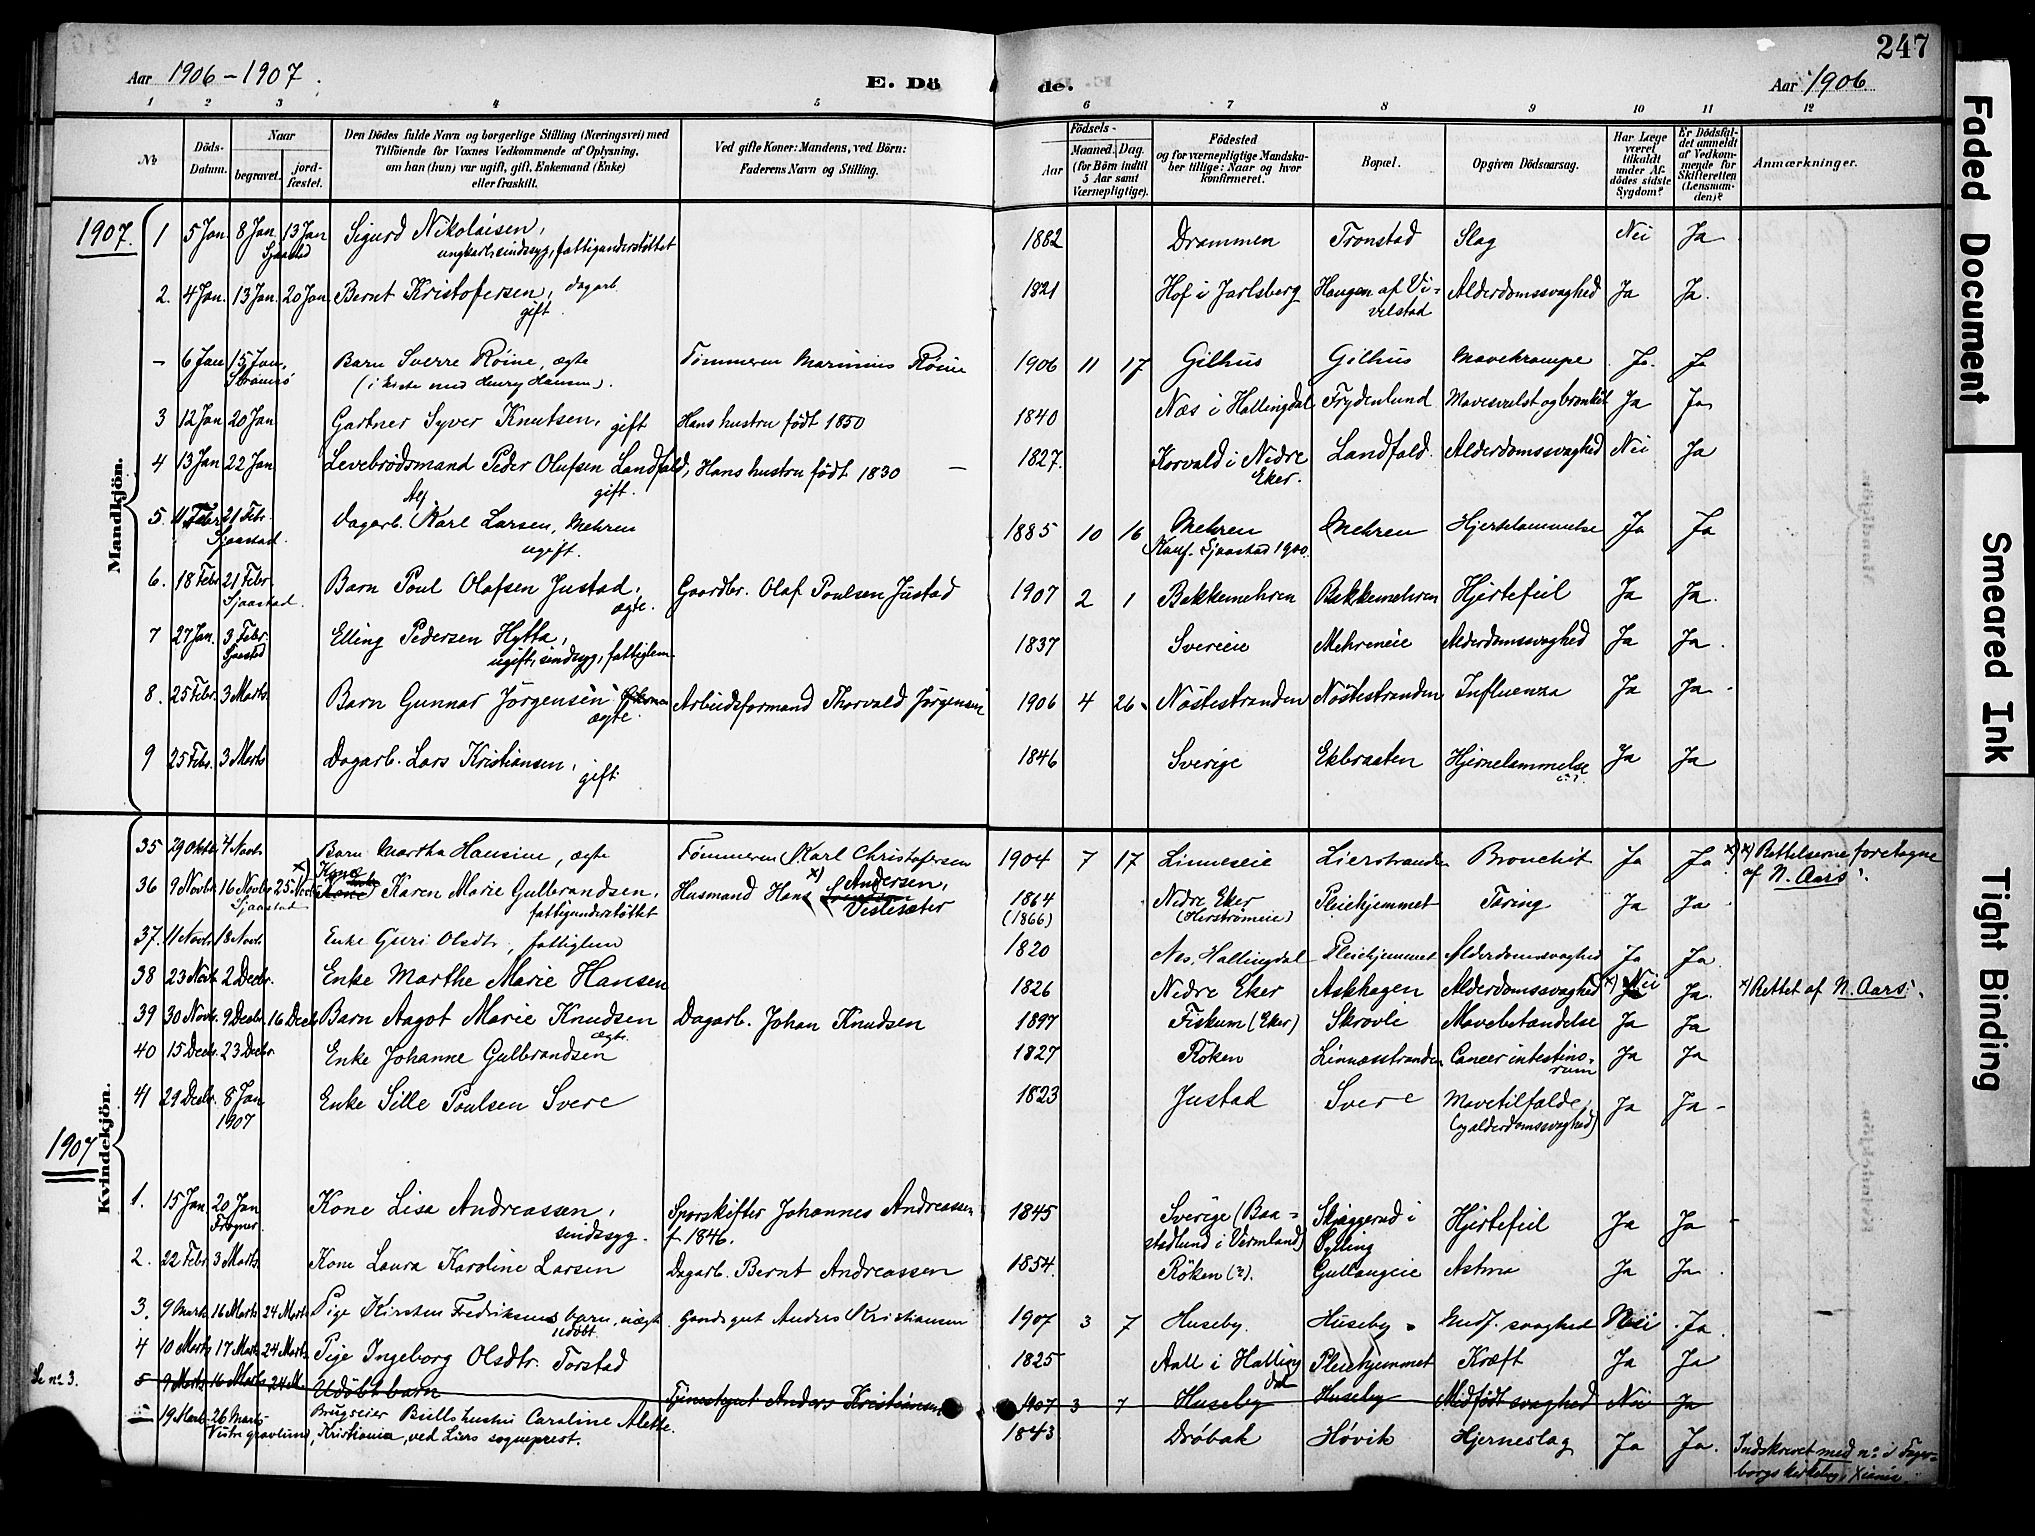 247
Aar 1906-1907.
E. Dö
de.
Aar 1906
1 2 3 4 5 6 7 8 9 10 11 12
No
Döds-Datum.
Naar
begravet.
jord-fæstet.
Den Dödes fulde Navn og borgerlige Stilling (Næringsvei) med
Tilföiende for Voxnes Vedkommende af Oplysning,
om han (hun) var ugift, gift, Enkemand (Enke)
eller fraskilt.
Ved gifte Koner: Mandens, ved Börn:
Faderens Navn og Stilling.
Födsels-
Aar
Maaned. Dag.
(for Börn indtil
5 Aar samt
Værnepligtige).
Födested
og for værnepligtige Mandska-
ber tillige: Naar og hvor
konfirmeret.
Bopæl.
Opgiven Dödsaarsag.
Har Læge
været
tilkaldt
under Af-
dödes sidste
Sygdom?
Er Dödsfal-
det anmeldt
af Vedkom-
mende for
Skifteretten
(Lensman-
den)?
Anmærkninger.
Mandkjön.
1907. 1 5 Jan. 8 Jan. 13 Jan Sigurd Nikolaisen, 1882 Drammen Tronstad Slag Nei Ja
Sjaastad ungkarl, sindssyg, fattigunderstöttet
2. 4 Jan. 13 Jan. 20 Jan Bernt Kristofersen, dagarb. 1821 Hof i Jarlsberg Haugen af Vi- Alderdomssvaghed Ja Ja.
gift. velstad
- 6 Jan 15 Jan. Barn Sverre Röine, ægte Tömmerm Marinius Röine 1906 11 17 Gilhus Gilhus Mavekrampe Ja. Ja
Strömsö (i kiste med Henry Hansen).
3 12 Jan 20 Jan. Gartner Syver Knutsen, gift Hans hustru födt 1850 1840 Næs i Hallingdal Frydenlund Mavesvulst og bronkit Ja Ja
4 13 Jan 22 Jan Levebrödsmand Peder Olufsen Landfald, Hans hustru födt 1830 — 1827. Korvald i Nedre Landfald. Alderdomssvaghed Nei Ja
gift. Eker.
5. 11 Febr 21 Febr. Dagarb. Karl Larsen, Mehren 1885 10 16 Mehren Mehren Hjertelammelse Ja Ja
Sjaastad. ugift. Konf. Sjaastad 1900.
6. 18 Febr 21 Febr Barn Poul Olafsen Justad, Gaardbr. Olaf Poulsen Justad 1907 2 1 Bakkemehren Bakkemehren Hjertefeil Ja Ja.
Sjaastad. ægte.
7 27 Jan. 3 Febr. Elling Pedersen Hytta, 1837 Svereie Mehreneie Alderdomssvaghed Ja Ja.
Sjaastad ugift, sindssyg, fattiglem
8. 25 Febr. 3 Marts. Barn Gunnar Jörgensen Arbeidsformand Thorvald Jörgensen 1906 4 26. Nöstestranden Nöstestranden Influenza Ja Ja.
ægte.
9 25 Febr. 3 Marts Dagarb. Lars Kristiansen, gift. 1846 Sverige Ekbraaten Hjernelammelse Ja Ja
Kvindekjön.
35 29 Oktbr 4 Novbr Barn Martha Hansine, ægte Tömmerm Karl Christofersen 1904 7 17 Linneseie Lierstranden Bronchit Ja Ja x) Rettelserne foretagne
af N. Aars.
x) Kone
36 9 Novbr 16 Novbr 25 Novbr Karen Marie Gulbrandsen, Husmand Hans x) Andersen, 1864 Nedre Eker Pleiehjemmet Täring Ja Ja
Sjaastad fattigunderstöttet Vestesæter (1866) (Herströmeie)
37. 11 Novbr. 18 Novbr. Enke Guri Olsdtr., fattiglem 1820 Nes, Hallingdal Pleiehjemmet Alderdomssvaghed Ja Ja.
38 23 Novbr. 2 Decbr. Enke Marthe Marie Hansen 1826 Nedre Eker Askhagen Alderdomssvaghed x) Nei Ja. x) Rettet af N. Aars.
39 30 Novbr. 9 Decbr. 16 Decbr Barn Aagot Marie Knudsen Dagarb. Johan Knudsen 1897 Fiskum (Eker) Skrovle Mavebetændelse Ja Ja
ægte.
40 15 Decbr. 23 Decbr Enke Johanne Gulbrandsen 1827 Röken Linnesstranden Cancer intestino- Ja Ja
rum
41 29 Decbr. 8 Jan Enke Sille Poulsen Svere 1823 Justad Svere Mavetilfælde Ja Ja -
1907 (og alderdomssvaghed)
1907
1. 15 Jan. 20 Jan Kone Lisa Andreassen, Sporskifter Johannes Andreassen 1845 Sverige (Baa- Skjæggerud i Hjertefeil Ja Ja
Frogner. sindssyg. f. 1846. stadlund i Vermland) Sylling
2. 22 Febr. 3 Marts. Kone Laura Karoline Larsen Dagarb. Bernt Andreassen 1854. Röken (?). Gullaugeie Astma Ja Ja.
3. 9 Marts 16 Marts 24 Marts Pige Kirsten Fredriksens barn, uægte Gaardsgut Anders Kristiansen 1907 3 7 Huseby. Huseby. Medf. svaghed Nei Ja.
udöbt.
4 10 Marts 17 Marts 24 Marts. Pige Ingeborg Olsdtr. Torstad 1825 Aall i Halling Pleiehjemmet Kræft Ja Ja
dal
Se no 3. 5 9 Marts 16 Marts 24 M Udöbt barn Tjenestegut Anders Kristiansen 1907 3 7 Huseby Huseby Medfödt svaghed Nei Ja
5 19 Marts 26 Marts Brugseier Bulls hustru Caroline Alette. 1843 Dröbak Hövik Hjerneslag Ja Ja. Indskrevet med no i Fager-
Vestre gravlund, Kristiania, ved Liers sogneprest. borgs kirkebog, Xiania.
Faded Document
Smeared Ink
Tight Binding